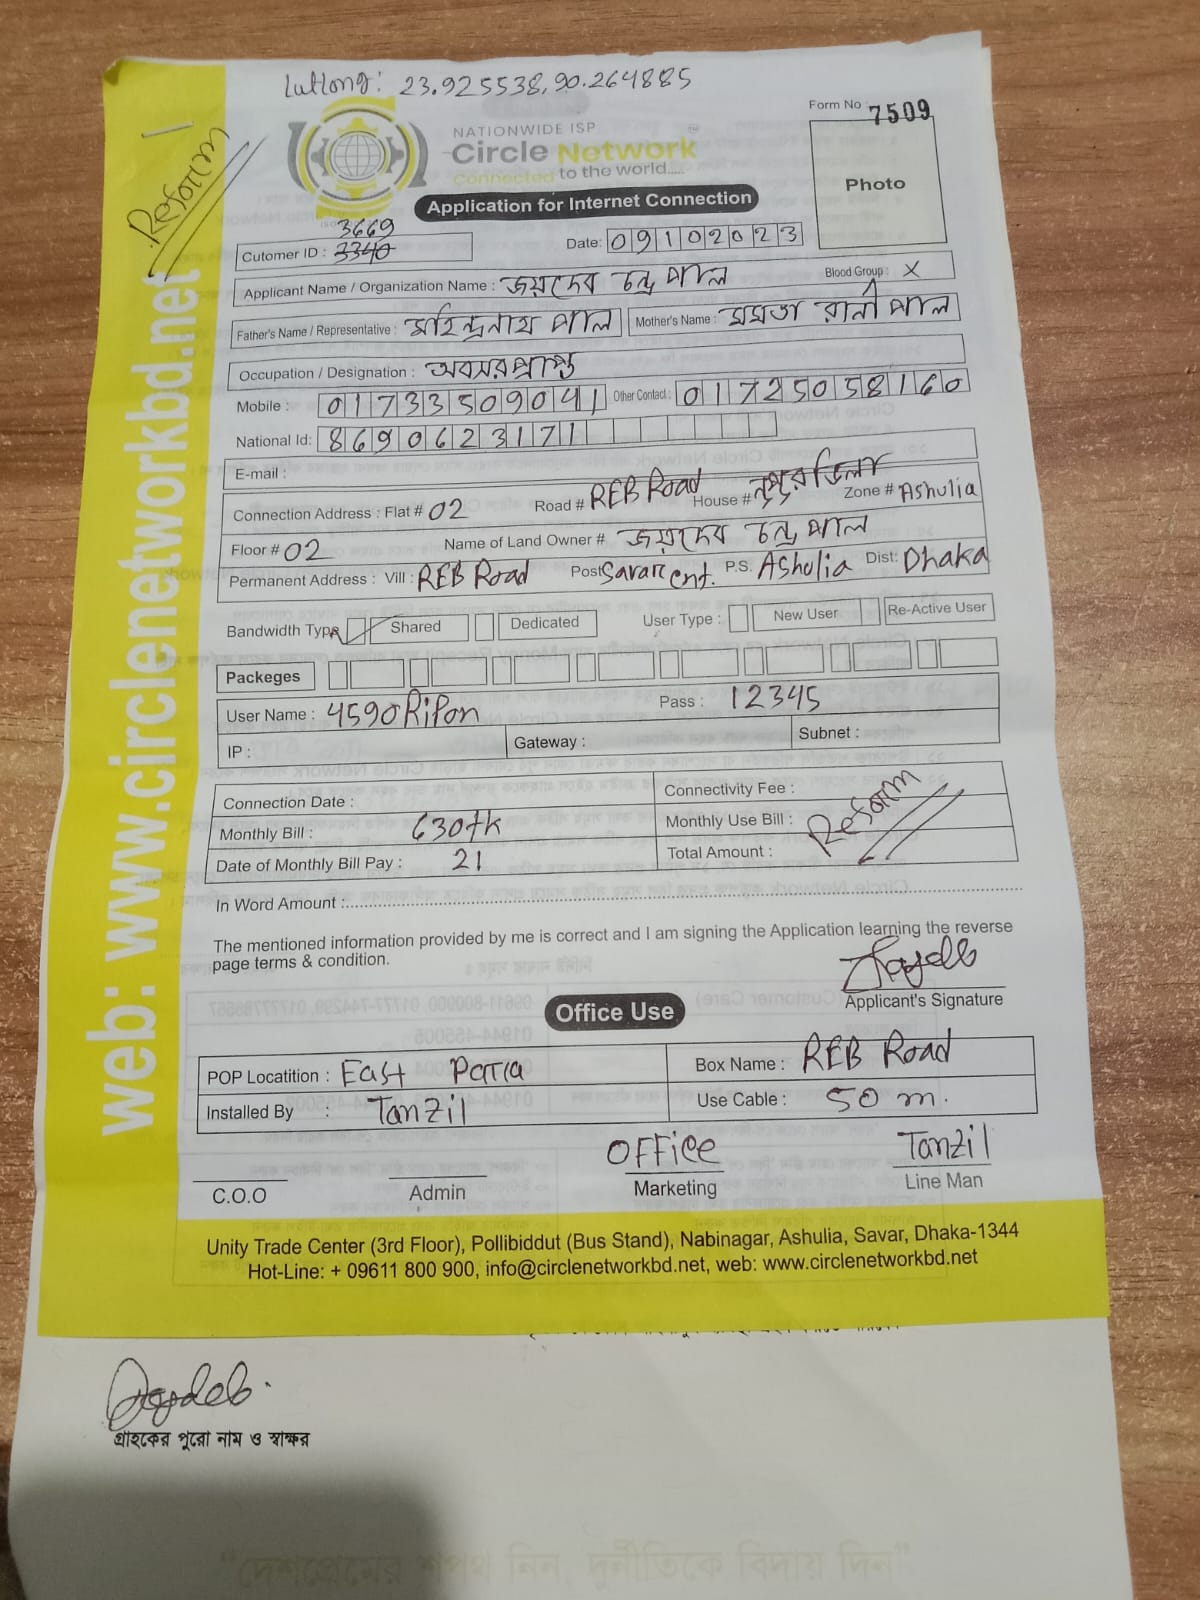 Latlong: 23.925538,90.264885
Form No : 7509
Reform
NATIONWIDE ISP
Circle Network
Connected to the world.....
Photo
Application for Internet Connection
3669
Cutomer ID : 3340
Date: 09102023
Applicant Name / Organization Name : জয়দেব চন্দ্র পাল Blood Group : X
Father's Name / Representative : মহিন্দ্রনাথ পাল Mother's Name : মমতা রানী পাল
Occupation / Designation : অবসরপ্রাপ্ত
Mobile : 01733509041 Other Contact : 01725058160
National Id: 8690623171
E-mail :
Connection Address : Flat # 02 Road # REB Road House # নূপুর ভিলা Zone # Ashulia
Floor # 02 Name of Land Owner # জয়দেব চন্দ্র পাল
Permanent Address : Vill : REB Road Post Savar cnt. P.S. Ashulia Dist: Dhaka
Bandwidth Type Shared Dedicated User Type : New User Re-Active User
Packeges
User Name : 4590Ripon Pass : 12345
IP : Gateway : Subnet :
Connection Date : Connectivity Fee :
Monthly Bill : 630tk Monthly Use Bill :
Date of Monthly Bill Pay : 21 Total Amount :
Reform
In Word Amount :
The mentioned information provided by me is correct and I am signing the Application learning the reverse
page terms & condition.
Joydeb
Applicant's Signature
Office Use
POP Locatition : East Para Box Name : REB Road
Installed By : Tanzil Use Cable : 50 m.
OFFice Tanzil
C.O.O Admin Marketing Line Man
Unity Trade Center (3rd Floor), Pollibiddut (Bus Stand), Nabinagar, Ashulia, Savar, Dhaka-1344
Hot-Line: + 09611 800 900, info@circlenetworkbd.net, web: www.circlenetworkbd.net
web: www.circlenetworkbd.net
Joydeb.
গ্রাহকের পুরো নাম ও স্বাক্ষর
“দেশপ্রেমের শপথ নিন, দুর্নীতিকে বিদায় দিন”